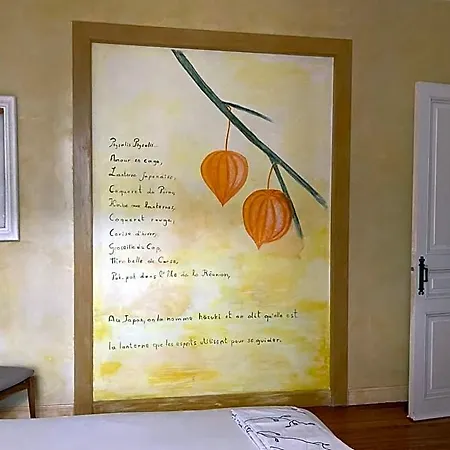 Physalis Physalis...
Amour en cage,
Lanterne Japonaise,
Coqueret du Pérou
lanternes,
Coqueret rouge,
Cerise d'hiver,
Groseille du Cap,
Mirabelle de Corse,
Pok-pok dans l'île de la Réunion,
Au Japon, on la nomme hozuki et on dit qu'elle est
la lanterne que les esprits utilisent pour se guider.